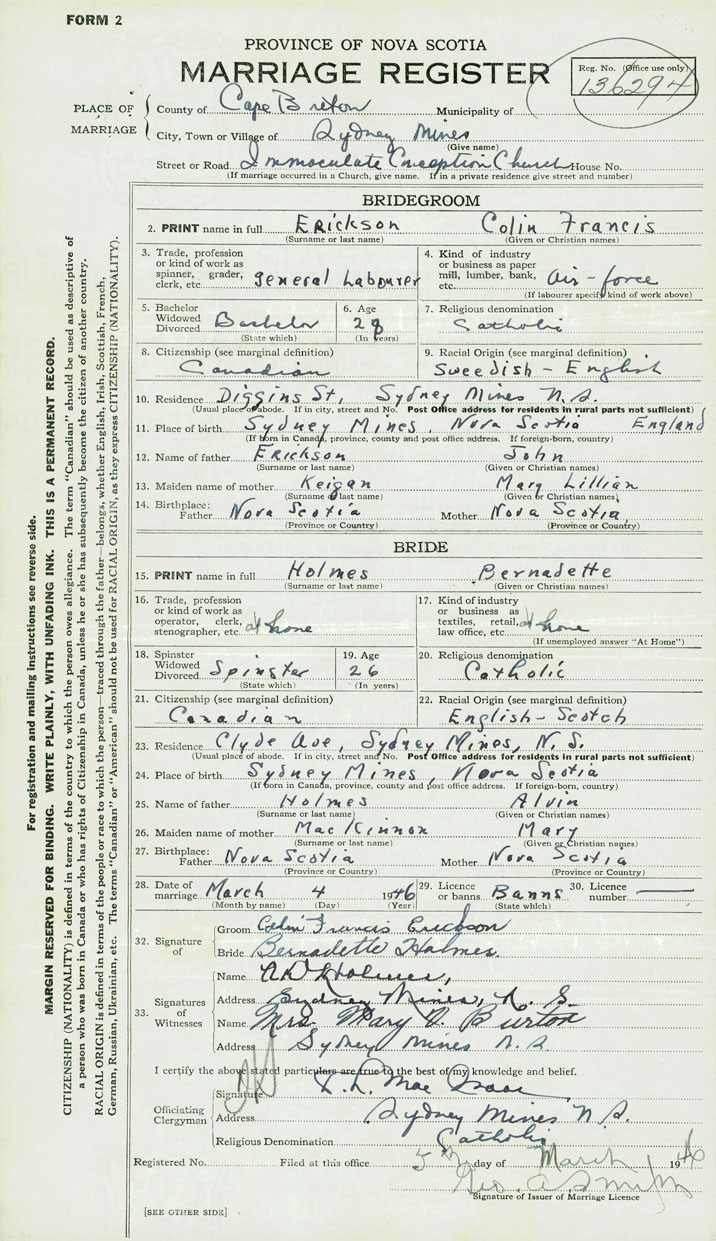 FORM 2
PROVINCE OF NOVA SCOTIA
MARRIAGE REGISTER
Reg. No. (Office use only)
136294
PLACE OF MARRIAGE
County of Cape Breton Municipality of
City, Town or Village of Sydney Mines
(Give name)
Street or Road Immaculate Conception Church House No.
(If marriage occurred in a Church, give name. If in a private residence give street and number)
BRIDEGROOM
2. PRINT name in full Erickson Colin Francis
(Surname or last name) (Given or Christian names)
3. Trade, profession or kind of work as spinner, grader, clerk, etc. general Labourer
4. Kind of industry or business as paper mill, lumber, bank, etc. Air-force
(If labourer specify kind of work above)
5. Bachelor Widowed Divorced Bachelor
(State which)
6. Age 28
(In years)
7. Religious denomination
Catholic
8. Citizenship (see marginal definition)
Canadian
9. Racial Origin (see marginal definition)
Sweedish - English
10. Residence Diggins St, Sydney Mines N.S.
(Usual place of abode. If in city, street and No. Post Office address for residents in rural parts not sufficient)
11. Place of birth Sydney Mines, Nova Scotia England
(If born in Canada, province, county and post office address. If foreign-born, country)
12. Name of father Erickson John
(Surname or last name) (Given or Christian names)
13. Maiden name of mother Keigan Mary Lillian
(Surname or last name) (Given or Christian names)
14. Birthplace: Father Nova Scotia Mother Nova Scotia
(Province or Country) (Province or Country)
BRIDE
15. PRINT name in full Holmes Bernadette
(Surname or last name) (Given or Christian names)
16. Trade, profession or kind of work as operator, clerk, stenographer, etc. at home
17. Kind of industry or business as textiles, retail, law office, etc. at home
(If unemployed answer "At Home")
18. Spinster Widowed Divorced Spinster
(State which)
19. Age 26
(In years)
20. Religious denomination
Catholic
21. Citizenship (see marginal definition)
Canadian
22. Racial Origin (see marginal definition)
English - Scotch
23. Residence Clyde Ave, Sydney Mines, N.S.
(Usual place of abode. If in city, street and No. Post Office address for residents in rural parts not sufficient)
24. Place of birth Sydney Mines, Nova Scotia
(If born in Canada, province, county and post office address. If foreign-born, country)
25. Name of father Holmes Alvin
(Surname or last name) (Given or Christian names)
26. Maiden name of mother MacKinnon Mary
(Surname or last name) (Given or Christian names)
27. Birthplace: Father Nova Scotia Mother Nova Scotia
(Province or Country) (Province or Country)
28. Date of marriage March 4 1946
(Month by name) (Day) (Year)
29. Licence or banns Banns
(State which)
30. Licence number
32. Signature of
Groom Colin Francis Erickson
Bride Bernadette Holmes.
33. Signatures of Witnesses
Name Holmes,
Address Sydney Mines, N. S.
Name Mrs. Mary V. Burton
Address Sydney Mines N.S
I certify the above stated particulars are true to the best of my knowledge and belief.
Officiating Clergyman
Signature Mac Isaac
Address Sydney Mines N.S.
Religious Denomination Catholic
Registered No. Filed at this office 5th day of March 1946
Geo. A Smith
Signature of Issuer of Marriage Licence
[SEE OTHER SIDE]
For registration and mailing instructions see reverse side.
MARGIN RESERVED FOR BINDING. WRITE PLAINLY, WITH UNFADING INK. THIS IS A PERMANENT RECORD.
CITIZENSHIP (NATIONALITY) is defined in terms of the country to which the person owes allegiance. The term "Canadian" should be used as descriptive of
a person who was born in Canada or who has rights of Citizenship in Canada, unless he or she has subsequently become the citizen of another country.
RACIAL ORIGIN is defined in terms of the people or race to which the person—traced through the father—belongs, whether English, Irish, Scottish, French,
German, Russian, Ukrainian, etc. The terms "Canadian" or "American" should not be used for RACIAL ORIGIN, as they express CITIZENSHIP (NATIONALITY).